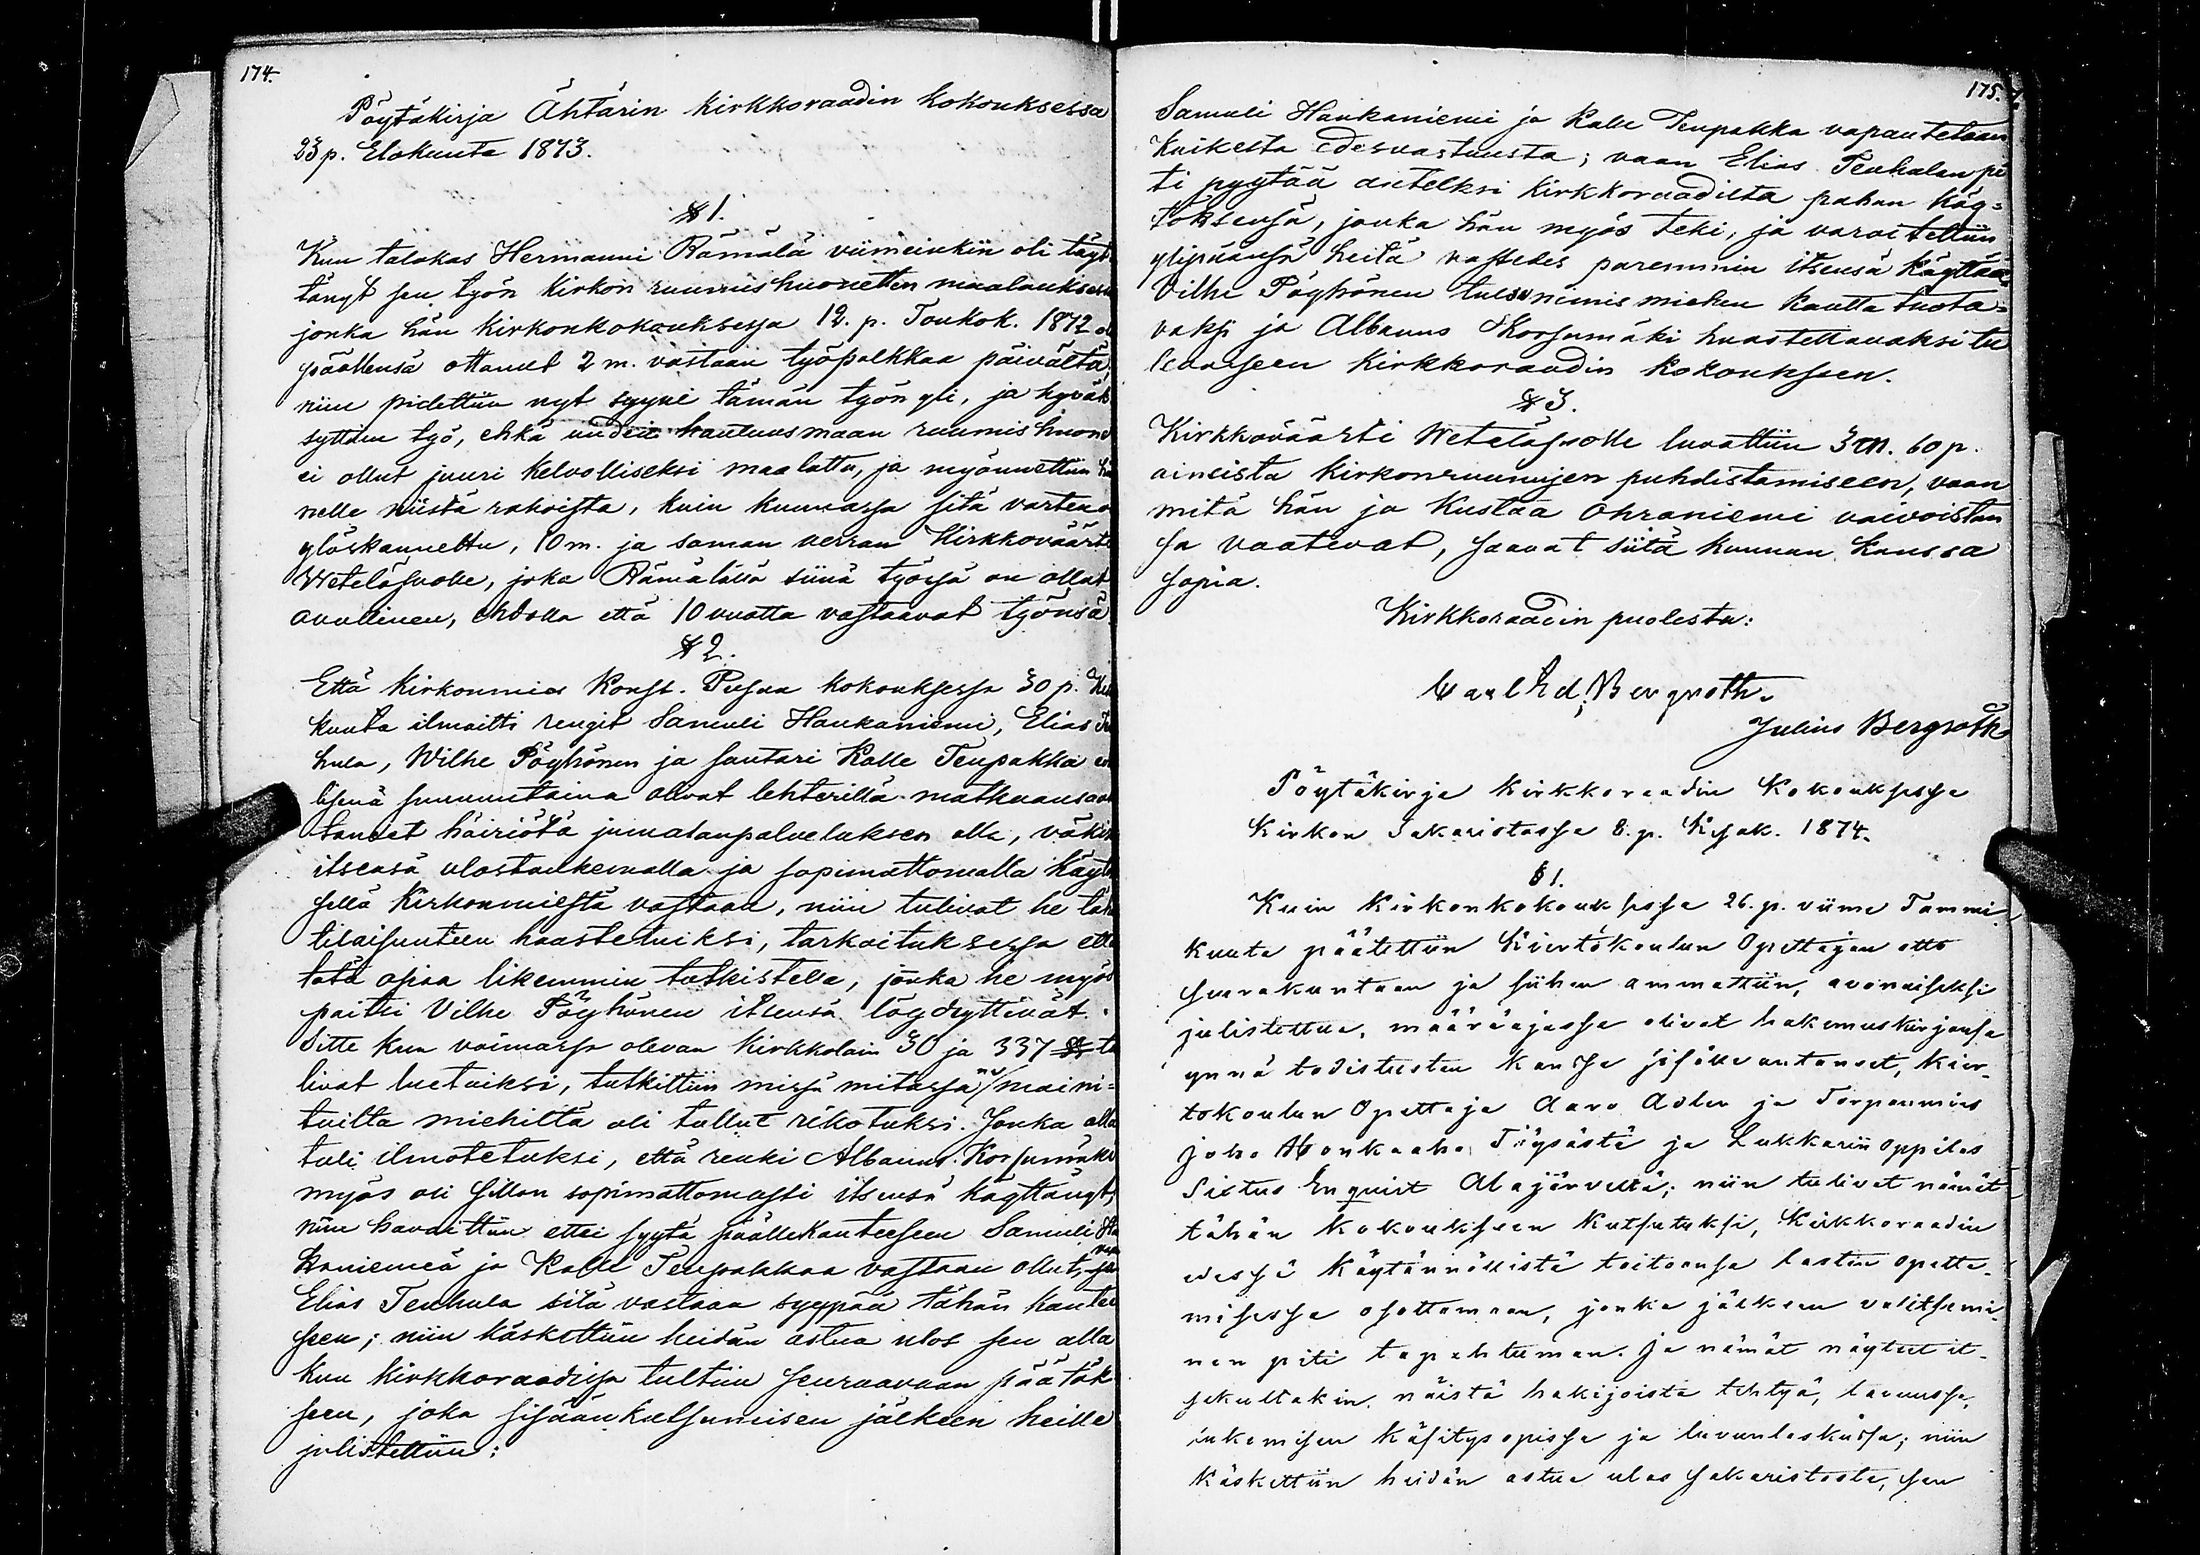 174.
Pöytäkirja Ähtärin Kirkkoraadin kokouksessa
23 p. Elokuuta 1873.
§ 1.
Kun talokas Hermanni Rämälä viimeinkiin oli täyt
tänyt sen työn kirkon ruumishuonetten maalauksessa
jonka hän kirkonkokouksessa 12. p. Toukok. 1872 o
päällensä ottanut 2 m. vastaan työpalkkaa päivältä,
niin pidettiin nyt syyni tämän työn yli, ja hyväk
syttiin työ, ehkä uuden hautuusmaan ruumishuone
ei ollut juuri kelvolliseksi maalattu, ja myönnettiin hä
nelle niistä rahoista, kuin kunnassa sitä varten o
ylöskannettu, 10 m. ja saman verran Kirkkoväärti
Weteläsuolle, joka Rämälällä siinä työssä on ollut
avullinen, ehdolla että 10 vuotta vastaavat työnsä.
§ 2.
Että Kirkonmies Konst. Pusaa kokouksessa 30 p.
kuuta ilmoitti rengit Samuli Haukaniemi, Elias Te
hula, Wilhe Pöyhönen ja sautari Kalle Teupakka
lisenä sunnuntaina olivat lehterillä matkaansaat
taneet häiriötä jumalanpalveluksen alla, väkis
itsensä ulostunkemalla ja sopimattomalla käytö
sellä Kirkonmiestä vastaan, niin tulivat he tähän
tilaisuuteen haastetuiksi, tarkoituksessa että
tätä asiaa likemmin tutkistella, jonka he myös
paitsi Vilhe Pöyhönen itsensä löydyttivät.
Sitte kun voimassa olevan Kirkkolain 30 ja 337 §§ tu
livat luetuiksi, tutkittiin missä mitassa nu/maini=
tuilta miehiltä oli tullut rikotuksi. Jonka alla
tuli ilmotetuksi, että renki Albanus Korsumäki
myös oli sillon sopimattomasti itsensä käyttänyt,
niin havaittiin ettei syytä päällekanteeseen Samuli Ha
kaniemeä ja Kalle Teupakkaa vastaan ollut, vaan
Elias Teuhula sitä vastaan syypää tähän kantee
seen; niin käskettiin heidän astua ulos sen alla
kun kirkkoraadissa tultiin seuraavaan päätök
seen, joka sisäänkutsumisen jälkeen heille
julistettiin:
175.
Samuli Haukaniemi ja Kalle Teupakka vapautetaan
kaikesta edesvastuusta; vaan Elias Teuhulan pi
ti pyytää anteeksi Kirkkoraadilta pahan käy=
töksensä, jonka hän myös teki, ja varoitettiin
ylipäänsä heitä vastedes paremmin itsensä käyttää,
Vilhe Pöyhönen tulee nimismiehen kautta tuota=
vaksi ja Albanus Korsumäki haastettavaksi tu
levaseen Kirkkoraadin kokoukseen.
§ 3.
Kirkkoväärti Weteläsuolle luvattiin 3 m. 60 p.
aineista kirkonruunujen puhdistamiseen, vaan
mitä hän ja Kustaa Ohraniemi vaivoistan
sa vaativat, saavat siitä kunnan kanssa
sopia.
Kirkkoraadin puolesta:
Carl Ed. Bergroth.
Julius Bergroth
Pöytäkirja Kirkkoraadin Kokouksessa
Kirkon Sakaristossa 8. p. Kesäk. 1874.
§ 1.
Kuin Kirkonkokouksessa 26. p. viime Tammi
kuuta päätettiin Kiertokoulun Opettajan otto
seurakuntaan ja siihen ammattiin, avonaiseksi
julistettua, määräajassa olivat hakemuskirjansa
ynnä todistusten kanssa sisälle antaneet, Kier-
tokoulun Opettaja Aaro Adler ja Torpanmies
Joho Honkaaho Töysästä ja Lukkariin oppilas
Sixtus Enqvist Alajärveltä; niin tulivat nämät
tähän Kokoukseen kutsutuksi, Kirkkoraadin
edessä käytännöllistä taitoansa lasten opetta-
misessa osottamaan, jonka jälkeen valitsemi-
nen piti tapahtuman. Ja nämät näyteet it-
sekultakin näistä hakijoista tehtyä, laulussa,
lukemisen käsitysopissa ja luvunlaskussa; niin
käskettiin heidän astua ulos sakaristosta, sen